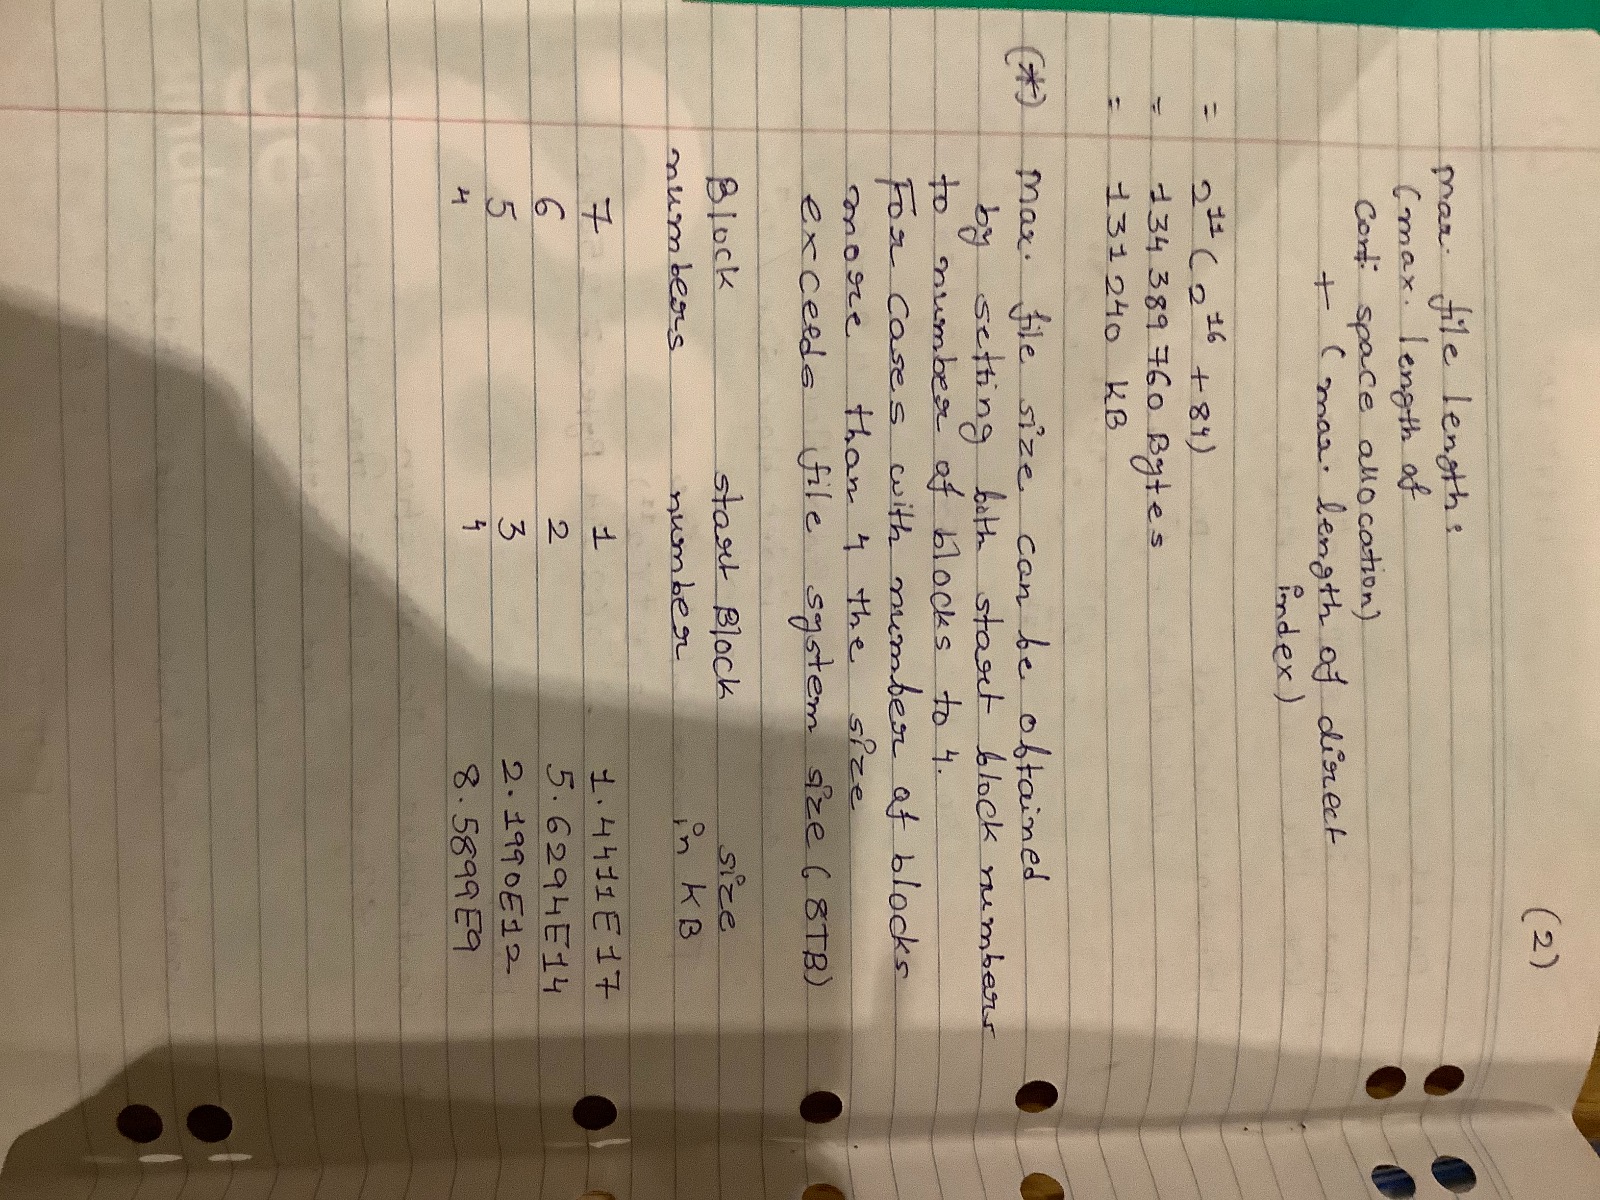 (2)
max. file length:
(max. length of
cont. space allocation)
+ (max. length of direct
index)
= 2¹¹(2¹⁶ + 84)
= 134 389 760 Bytes
= 131240 KB
(*) Max. file size can be obtained
by setting both start block numbers
to number of blocks to 4.
For cases with number of blocks
more than 4 the size
exceeds file system size (8TB)
Block start Block size
numbers number in KB
7 1 1.4411E17
6 2 5.6294E14
5 3 2.1990E12
4 4 8.5899E9